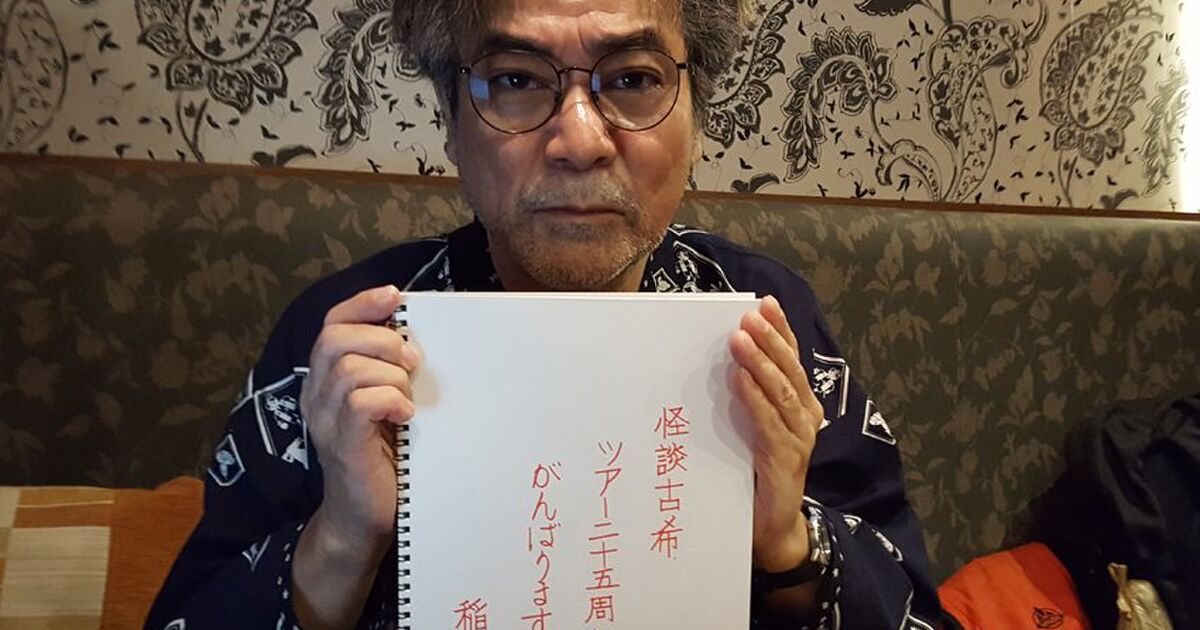 怪談古希
ツアー二十五周
がんばります
稲